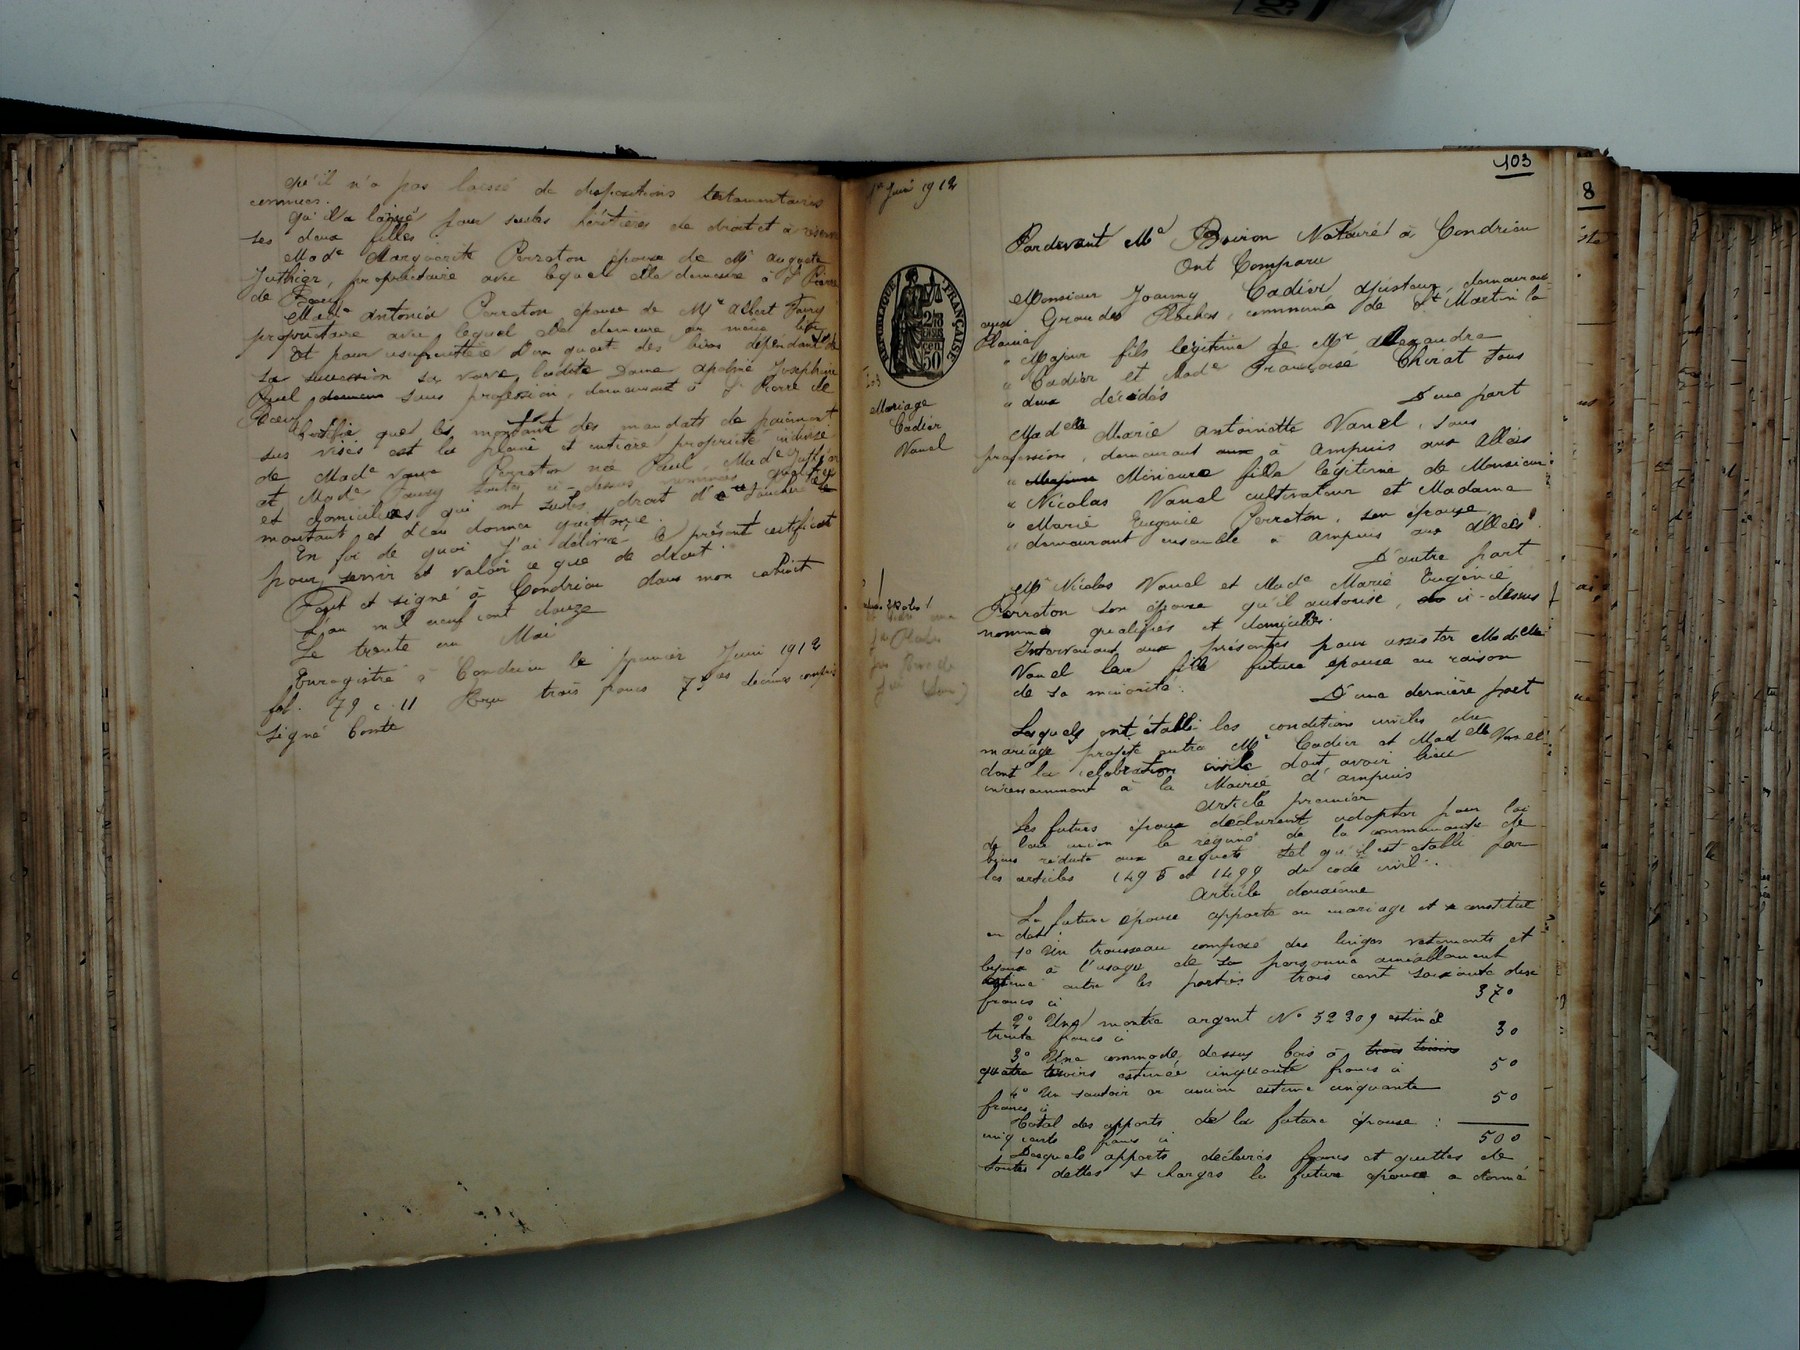 qu'il n'a pas laissé de dispositions testamentaires
connues.
qu'il a laissé pour seules héritières de droit et à réserve
ses deux filles
Made Marguerite Perraton épouse de Mr Auguste
Juthier, propriétaire avec lequel elle demeure à St Pierre
de Bœuf
Made Antonia Perraton épouse de Mr Albert Faury
propriétaire avec lequel elle demeure au même lieu
Et pour usufruitière d'un quart des biens dépendant de
sa succession sa veuve ladite Dame Apolnié Joséphine
Paul sans profession, demeurant à St Pierre de
Bœuf
Certifie que le montant des mandats de paiement
sus visés est la pleine et entière propriété indivise
de Made veuve Perraton née Paul, Made Juthier
et Made Faury toutes ci-dessus nommées qualifiées
et domiciliées qui ont seules droit d'en toucher le
montant et d'en donner quittance.
En foi de quoi j'ai délivré le présent certificat
pour servir et valoir ce que de droit.
Fait et signé à Condrieu dans mon cabinet
L'an mil neuf cent douze
Le trente un Mai
Enregistré à Condrieu le premier Juin 1912
fol. 79 c. 11 Reçu trois francs 75 ces décimes compris
signé Comte
103
8
1er Juin 1912
RÉPUBLIQUE FRANÇAISE
50
Mariage
Cadier
Vanel
Pardevant Me Boiron Notaire à Condrieu
Ont Comparu
Monsieur Joanny Cadier ajusteur, demeurant
aux Grandes Flaches, commune de St Martin la
Plaine
" Majeur fils légitime de Mr Alexandre
" Cadier et Made Françoise Chirat tous
" deux décédés
D'une part
Madelle Marie Antoinette Vanel, sans
profession, demeurant aux à Ampuis aux Allées
" Majeure Mineure fille légitime de Monsieur
" Nicolas Vanel cultivateur et Madame
" Marie Eugénie Perraton, son épouse,
" demeurant ensemble à Ampuis aux Allées
D'autre part
Mr Nicolas Vanel et Made Marie Eugénie
Perraton son épouse qu'il autorise, ci-dessus
nommés qualifiés et domiciliés.
Intervenant aux présentes pour assister Madelle
Vanel leur fille future épouse en raison
de sa minorité.
D'une dernière part
Lesquels ont établi les conditions civiles du
mariage projeté entre Mr Cadier et Madelle Vanel
dont la célébration civile doit avoir lieu
incessamment à la Mairie d'Ampuis
Article premier
Les futurs époux déclarent adopter pour loi
de leur union le régime de la communauté de
biens réduite aux acquets tel qu'il est établi par
les articles 1498 et 1499 du code civil.
Article deuxième
La future épouse apporte en mariage et se constitue
en dot :
1o Un trousseau composé des linges vetements et
bijoux à l'usage de sa personne amiablement
estimé entre les parties trois cent soixante dix
francs ci 370
2o Une montre argent No 52309 estimée
trente francs ci 30
3o Une commode dessus bois à trois tiroirs
quatre tiroirs estimée cinquante francs ci 50
4o Un sautoir or ancien estimé cinquante
francs ci 50
Total des apports de la future épouse :
cinq cents francs ci 500
Desquels apports déclarés francs et quittes de
toutes dettes et charges la future épouse a donné